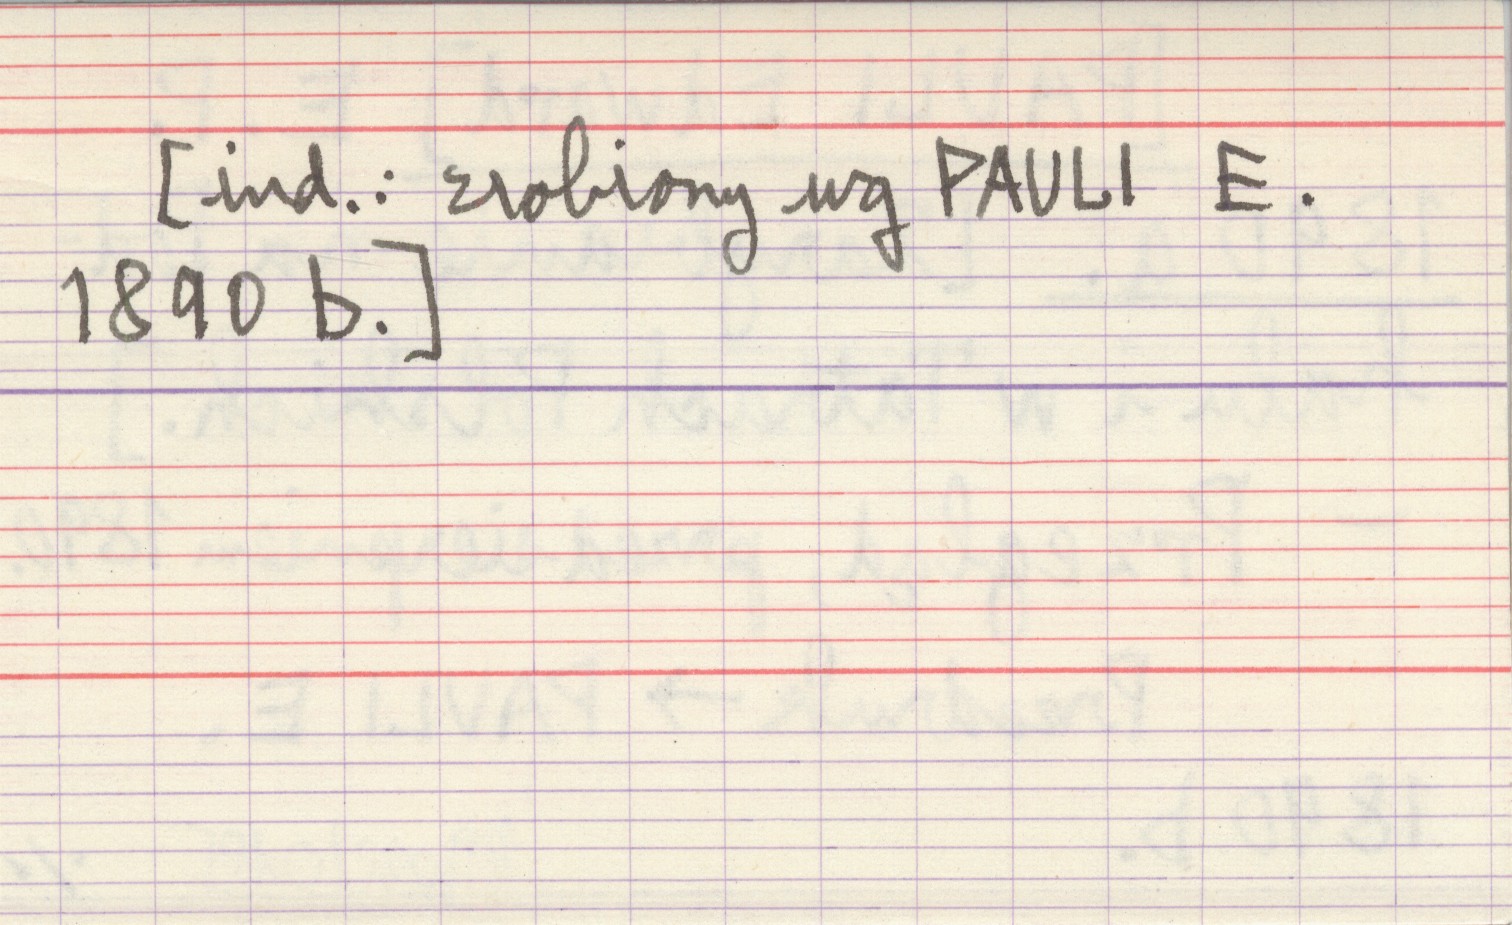 [ind.: zrobiony wg PAULI E.
1890 b.]